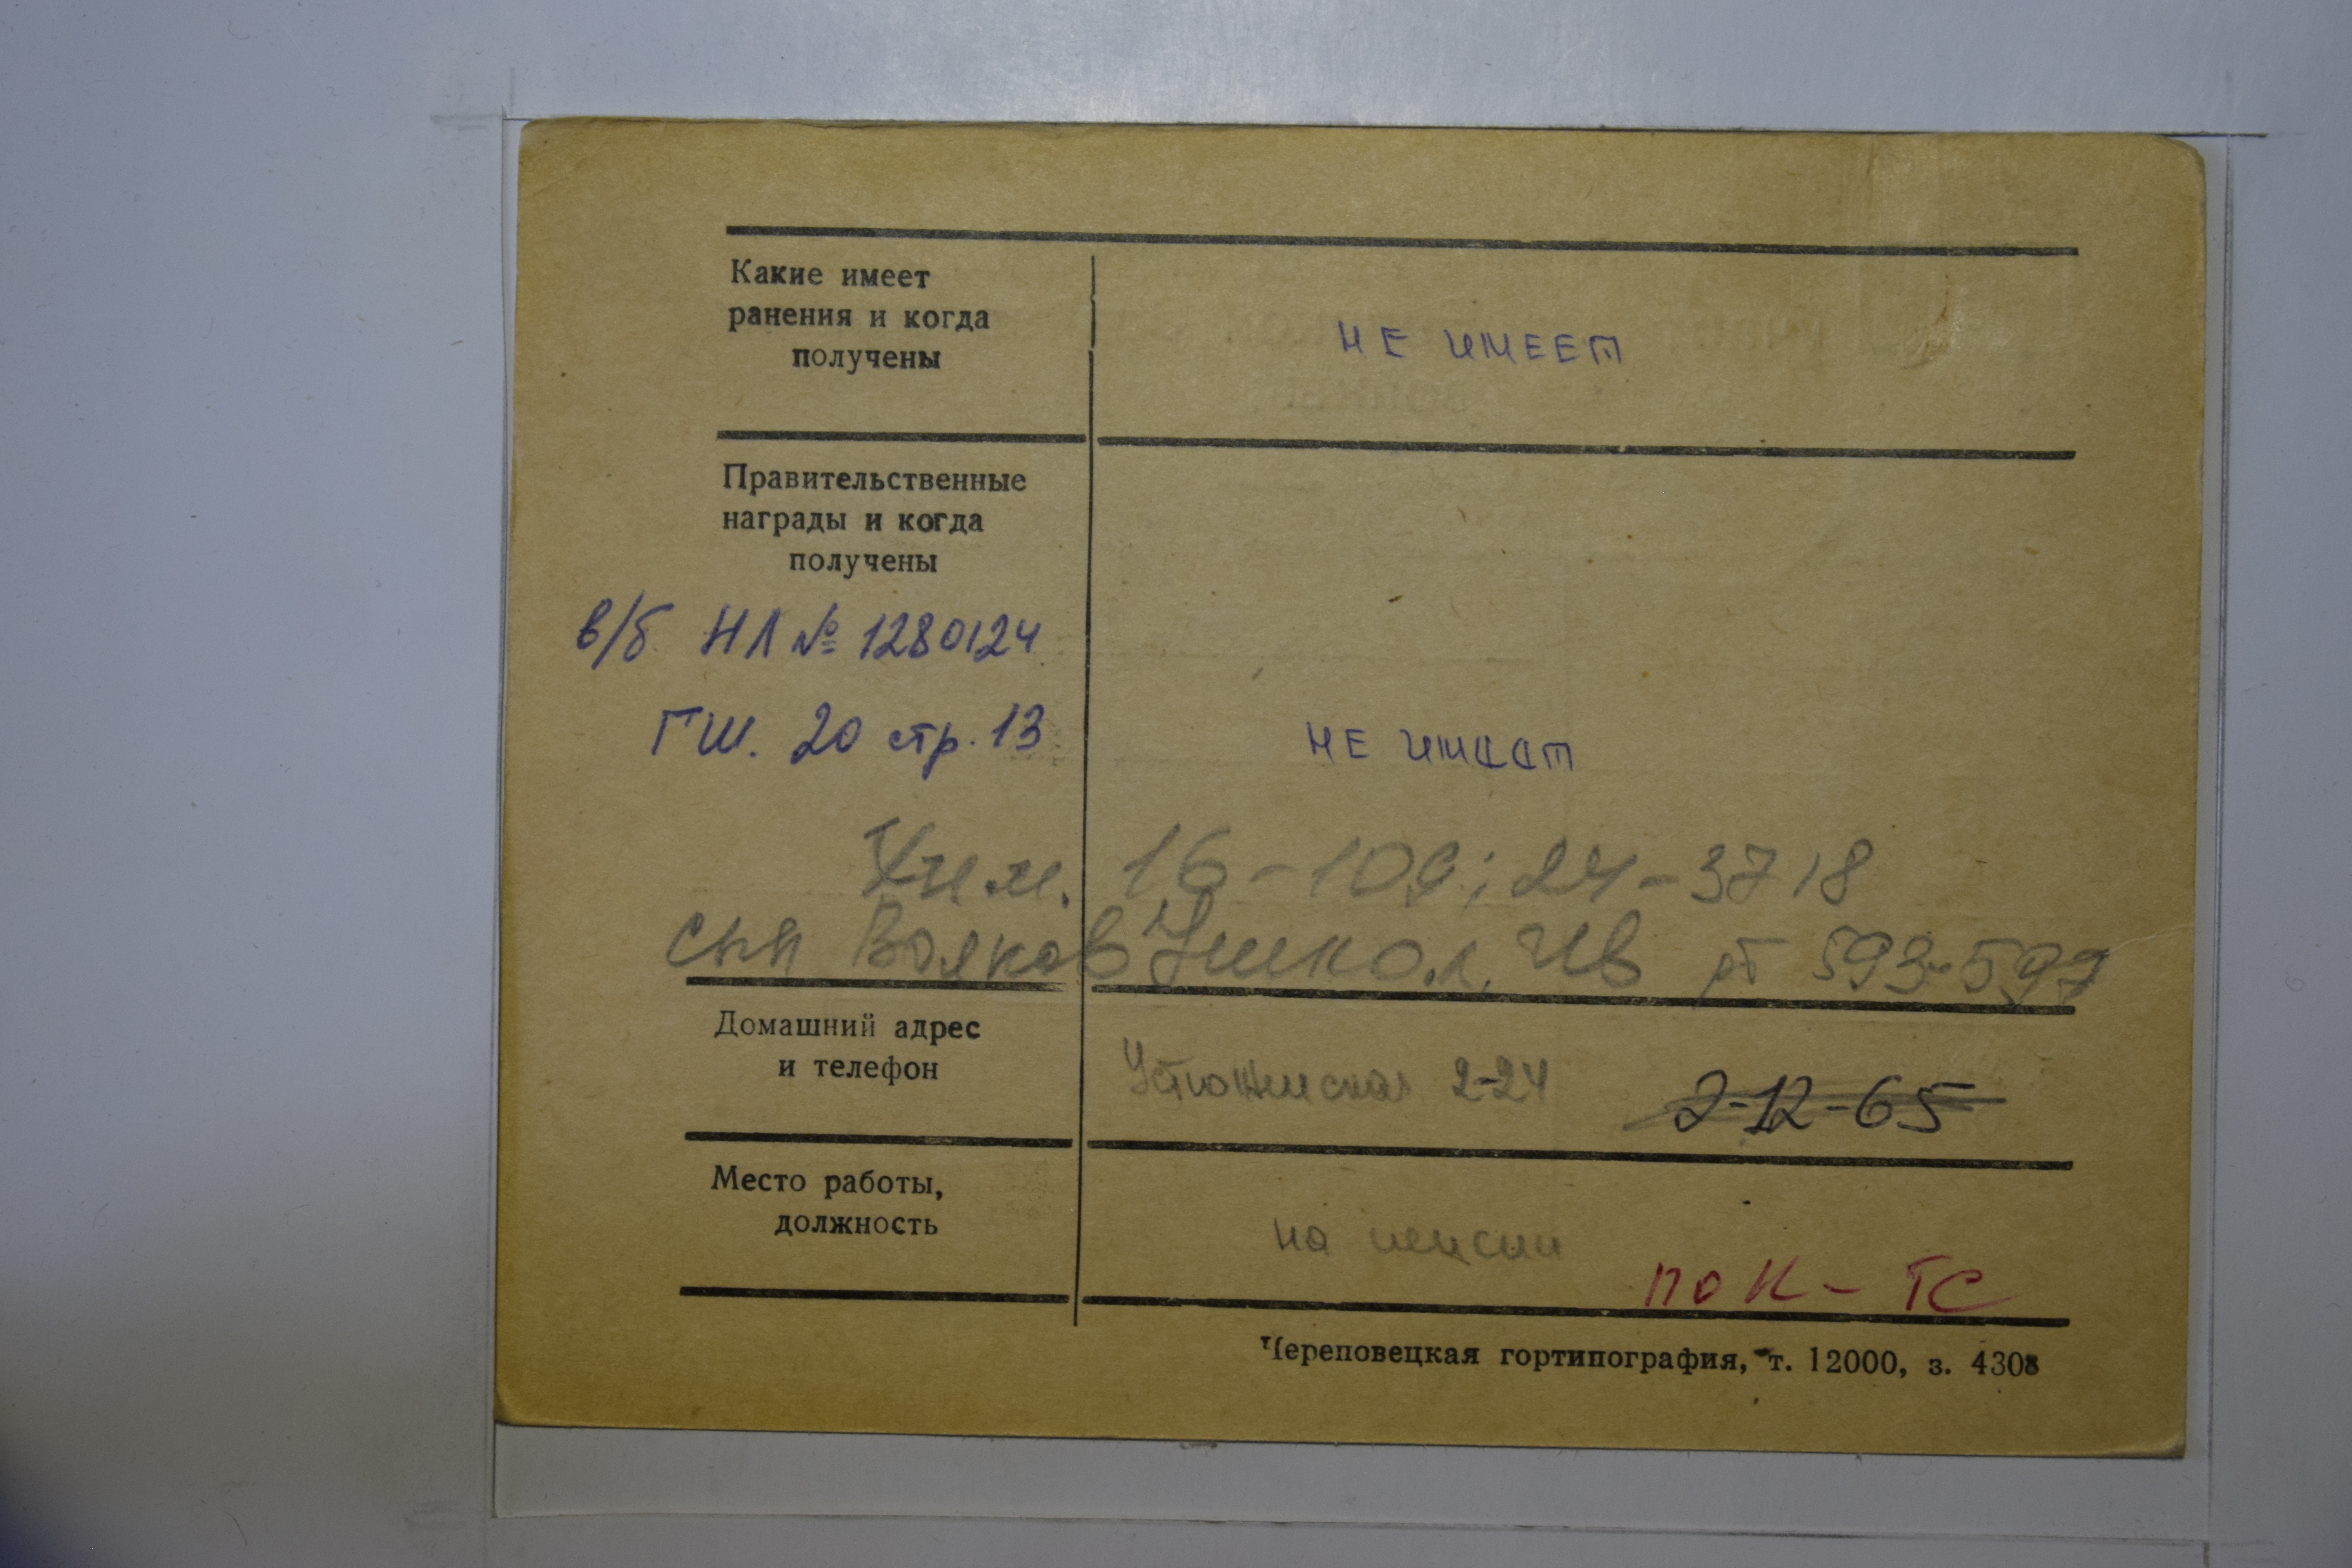 Какие имеет
ранения и когда
получены
НЕ ИМЕЕТ
Правительственные
награды и когда
получены
в/б НЛ № 1280124
ГШ. 20 стр. 13
НЕ ИМЕЕТ
Хим. 16-109; 24-3718
сын Волков Никол. Ив рт 593-597
Домашний адрес
и телефон
Устюженская 2-24 2-12-65
Место работы,
должность
на пенсии
ПОК - ТС
Череповецкая гортипография, т. 12000, з. 4308